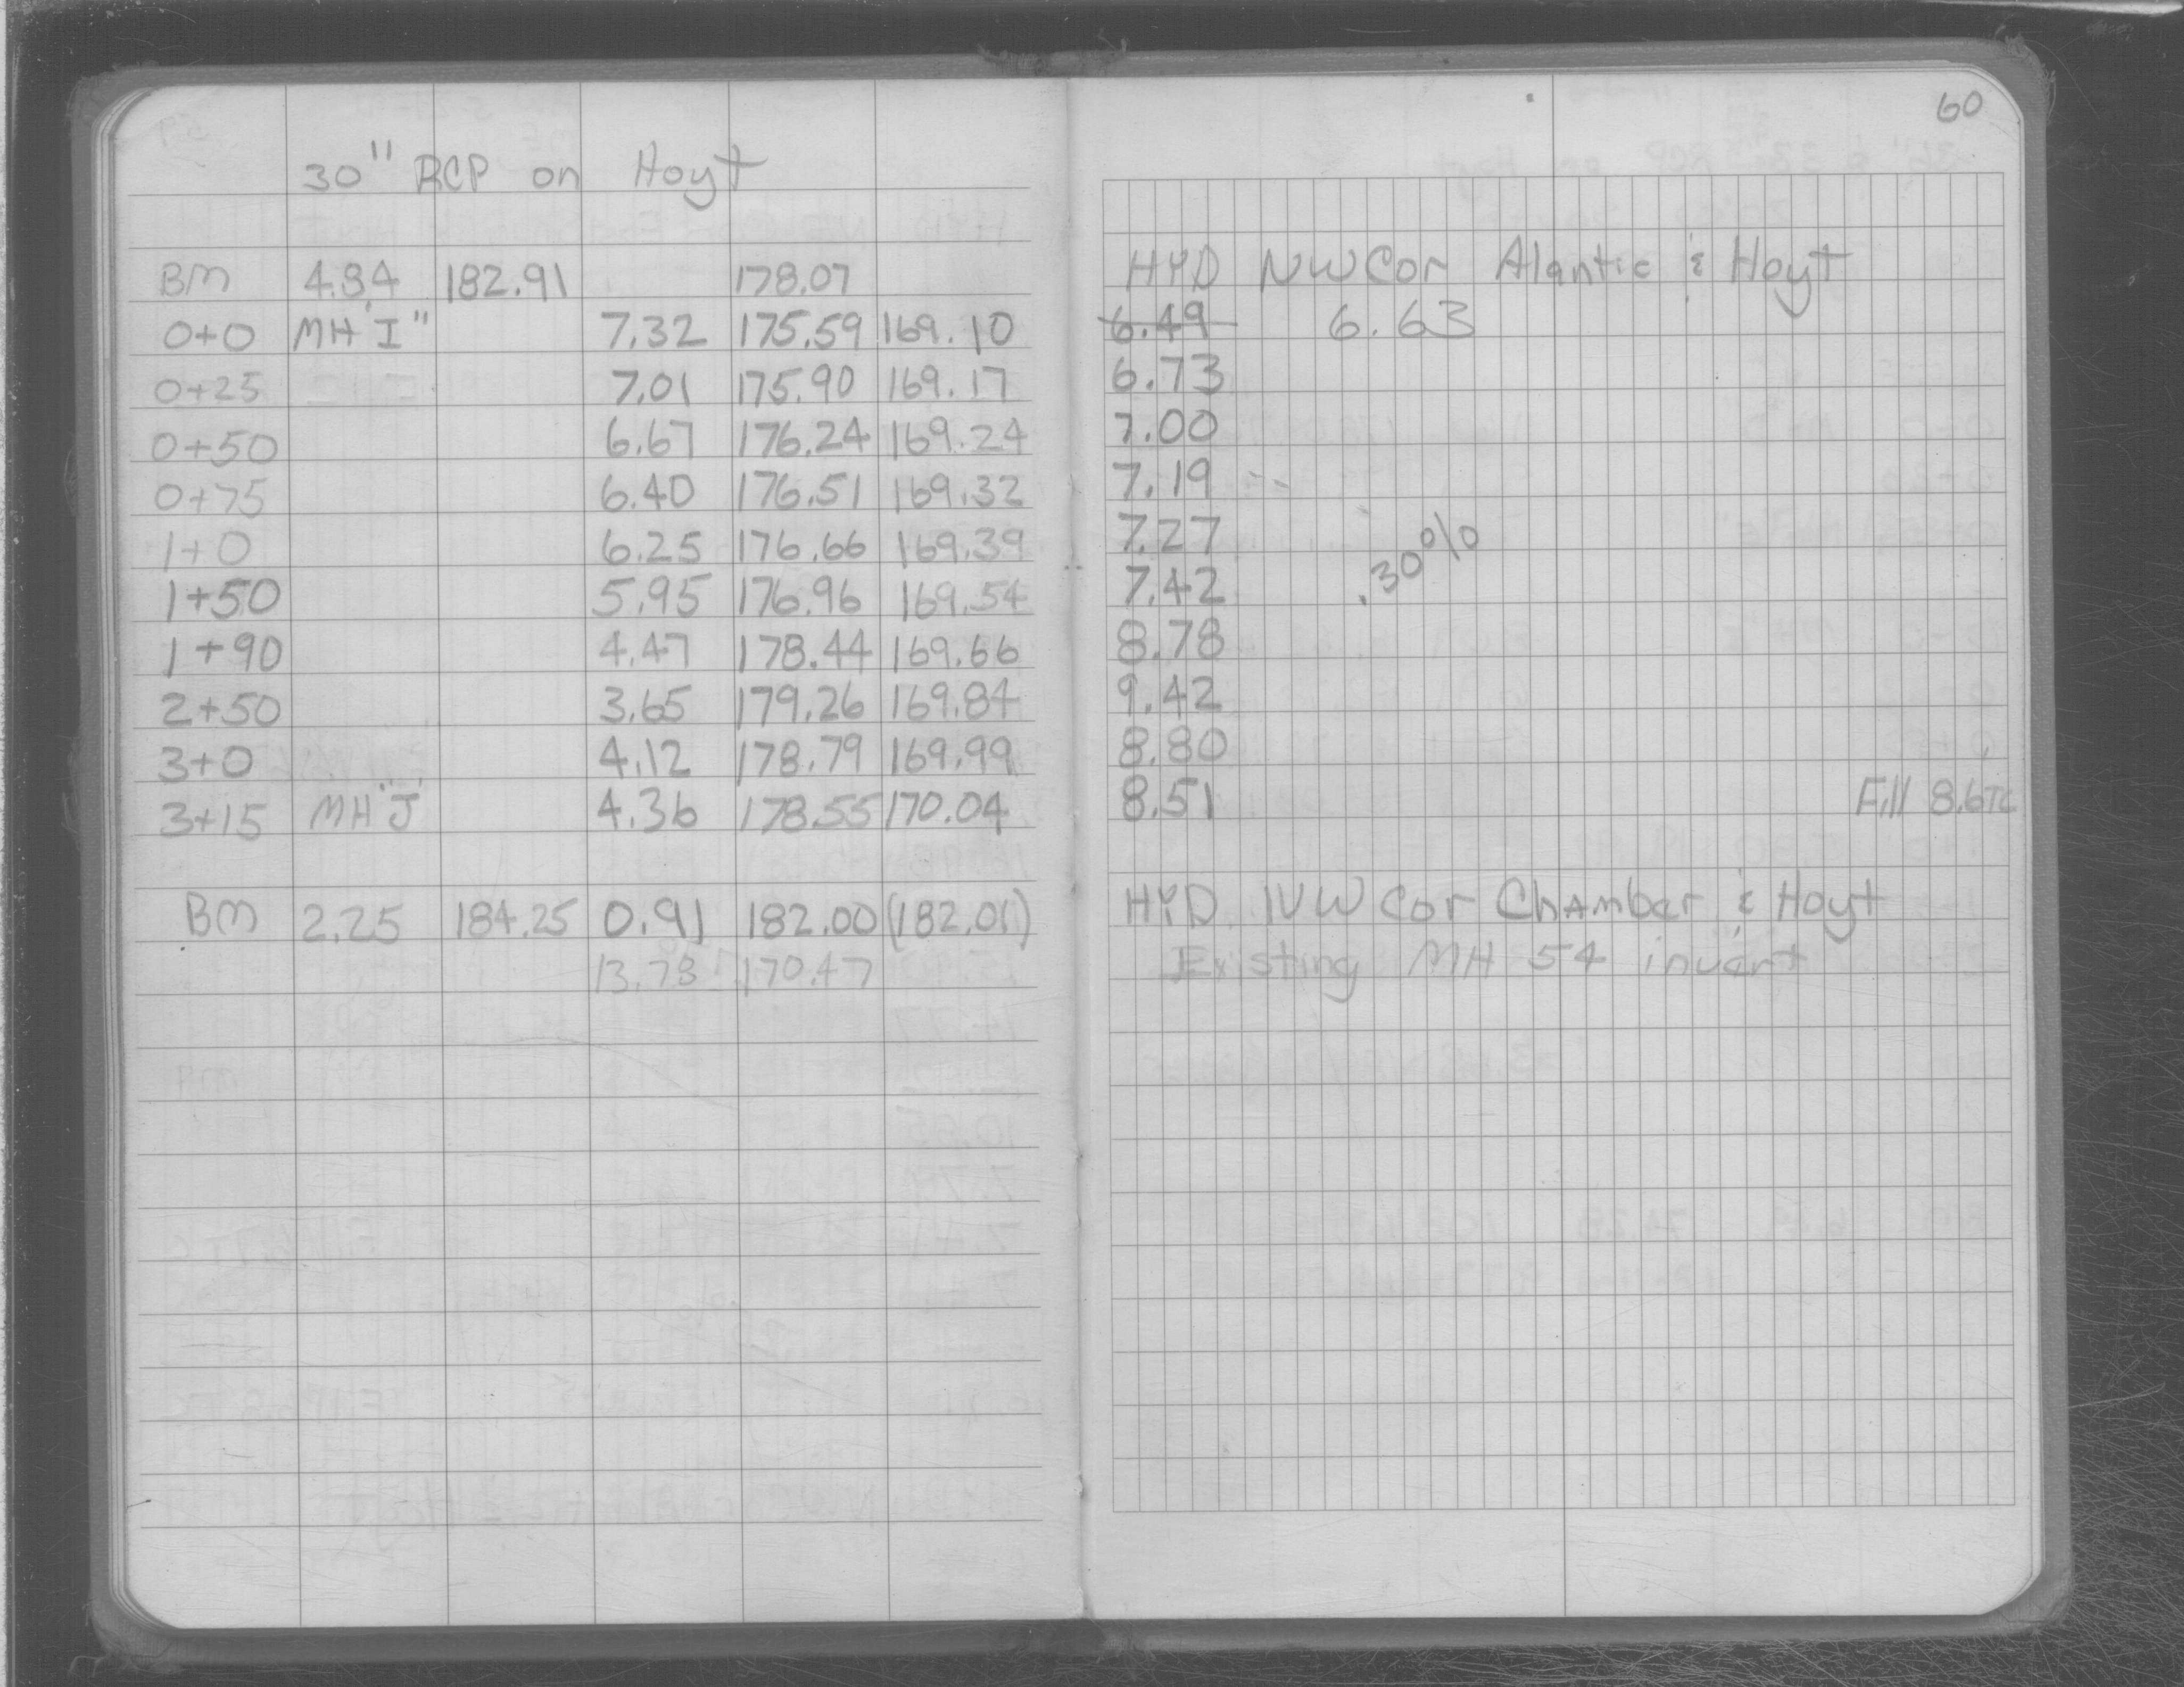 60
30" RCP on Hoyt
BM 4.84 182.91 178.07 HYD NW Cor Alantic & Hoyt
0+0 MH "I" 7.32 175.59 169.10 6.49 6.63
0+25 7.01 175.90 169.17 6.73
0+50 6.67 176.24 169.24 7.00
0+75 6.40 176.51 169.32 7.19
1+0 6.25 176.66 169.39 7.27
.30%
1+50 5.95 176.96 169.54 7.42
1+90 4.47 178.44 169.66 8.78
2+50 3.65 179.26 169.84 9.42
3+0 4.12 178.79 169.99 8.80
3+15 MH "J" 4.36 178.55 170.04 8.51 Fill 8.6 TC
BM 2.25 184.25 0.91 182.00 (182.01) HYD NW Cor Chamber & Hoyt
13.78 170.47 Existing MH 54 invert